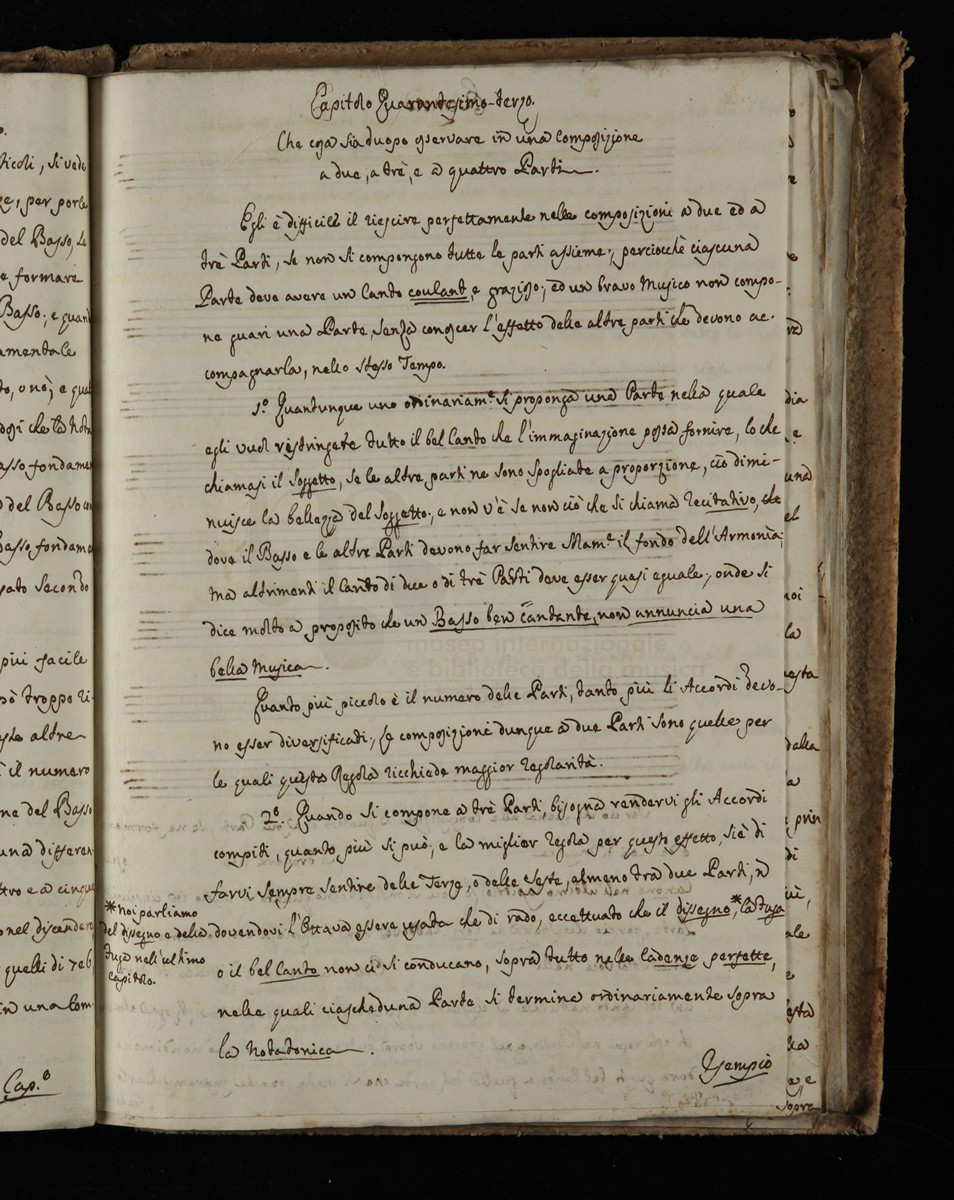 Capitolo Quarantesimo-terzo.
Che cosa sia duopo osservare in una Composizione
a due, a trè, e a quattro Parti.
Egli è difficile il riescire perfettamente nelle composizioni a due ed a
trè Parti, se non si compongono tutte le parti assieme; perciocchè ciascuna
Parte deve avere un Canto coulant, e grazioso; ed un bravo Musico non compo-
ne guari una Parte, senza conoscer l'effetto delle altre parti che devono ac-
compagnarla, nello stesso Tempo.
1.º Quantunque uno ordinariam.e si proponga una Parte nella quale
egli vuol restringere tutto il bel Canto che l'immaginazione possa fornire, lo che
chiamasi il Soggetto, se le altre parti ne sono spogliate a proporzione, ciò dimi-
nuisce la bellezza del Soggetto; e non v'è se non ciò che si chiama Recitativo, che
dove il Basso e le altre Parti devono far sentire il fondo dell'Armonia;
ma altrimenti il Canto di due o di trè Parti deve esser quasi eguale; onde si
dice molto a proposito che un Basso ben cantante, non annuncia una
bella Musica.
Quanto più piccolo è il numero delle Parti, tanto più li Accordi devo-
no esser diversificati; le composizioni dunque a due Parti sono quelle per
le quali questa Regola ricchiede maggior regolarità.
2.º Quando si compone a trè Parti, bisogna rendervi gli Accordi
compiti, quanto più si può; e la miglior regola per questo effetto, si è di
farvi sempre sentire delle Terze, o delle Seste, almeno trà due Parti, n
dovendovi l'Ottava essere usata che di rado, eccettuato che il dissegno*, la fuga
o il bel Canto non ci si conducano, sopra tutto nelle Cadenze perfette,
nelle quali ciascheduna Parte si termina ordinariamente sopra
la Nota tonica.
Esempio
*Noi parliamo
del disegno e della
fuga nell'ultimo
Capitolo.
ticoli, si vede
ze, per porle
del Basso, le
e formare
Basso; e quan
amentale
to, o nò; e qua
dosi che la Nota
asso fondam
del Basso
asso fondam
sato secondo
più facile
nò troppo ri-
ste altre
il numero
ne del Basso
una differen
ttro e a cinque
onel discendere
quelli di 7 e 6
in una Com-
Cap.º